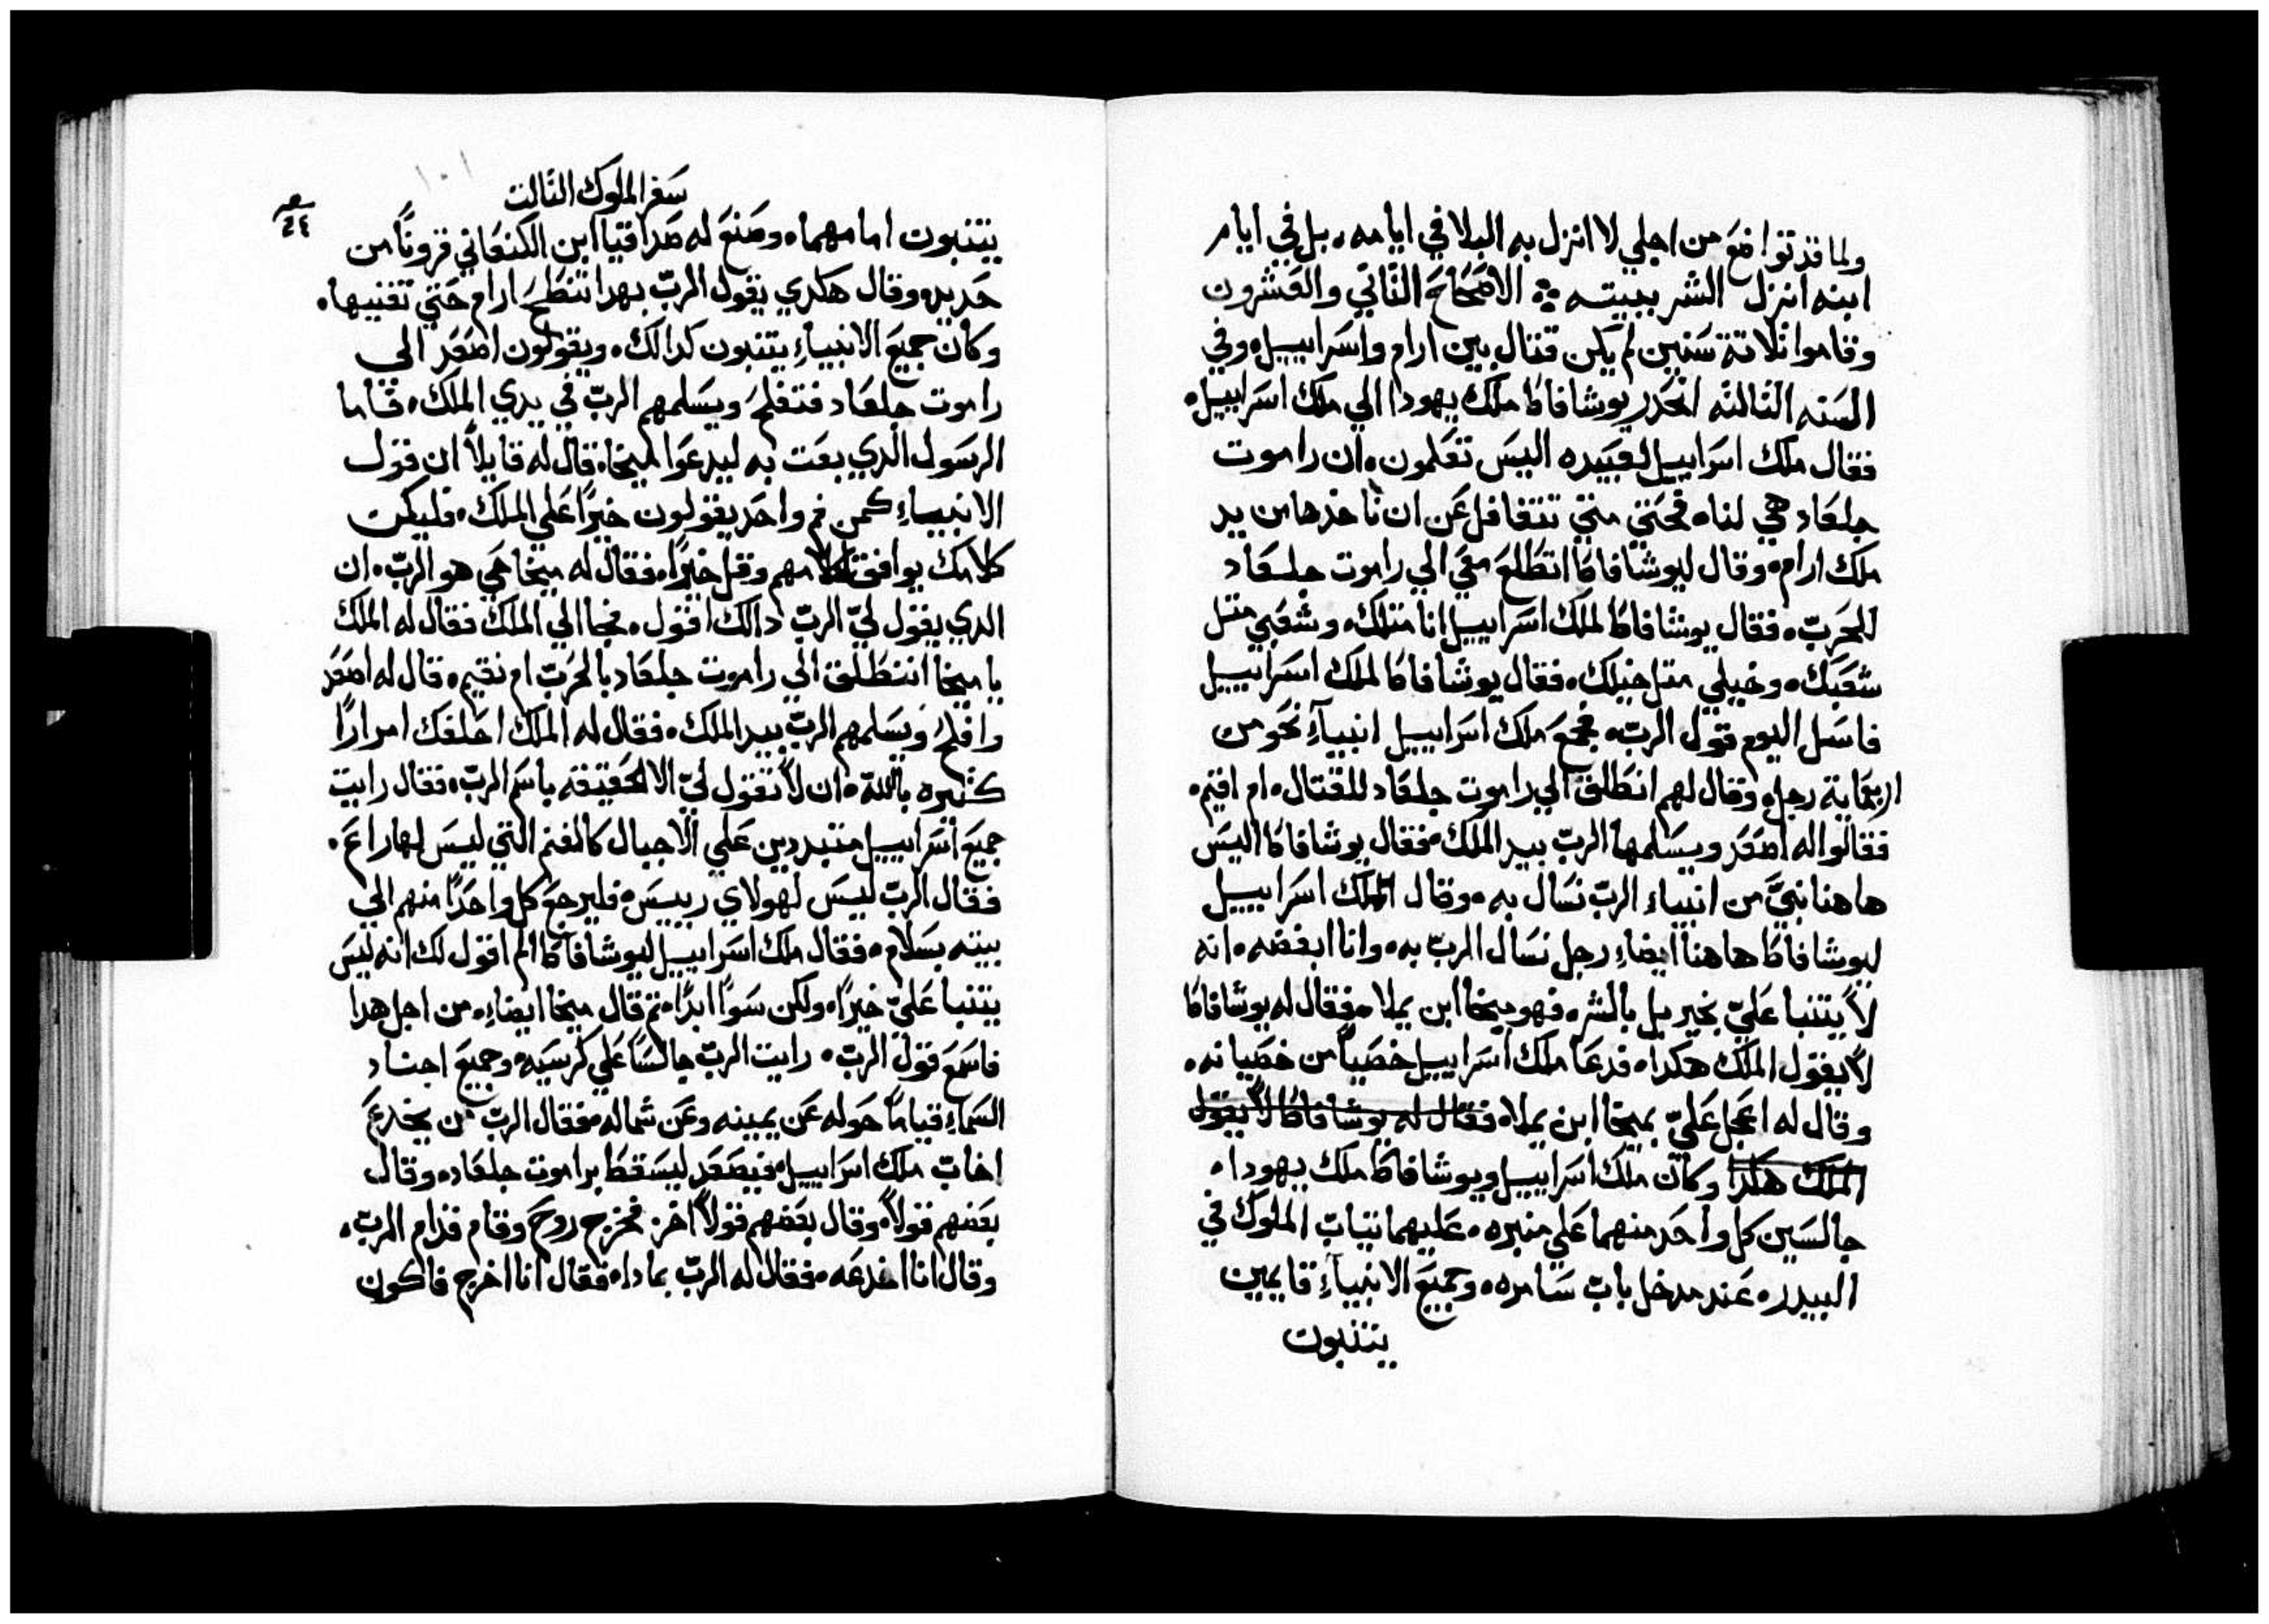 ولما قد تواضع من اجلي لا انزل به البلا في ايامه، بل في ايام
ابنه انزل الشر ببيته ؞ الاصحاح الثاني والعشرون
وقاموا ثلاتة سنين لم يكن قتال بين ارام واسراييل، وفي
السنه الثالثه انحدر يوشافاط ملك يهودا الي ملك اسراييل،
فقال ملك اسراييل لعبيده اليس تعلمون، ان راموت
جلعاد هي لنا، فحتي متي نتغافل عن ان ناخدها من يد
ملك ارام، وقال ليوشافاط اتطلع معي الي راموت جلعاد
للحرب، فقال يوشافاط لملك اسراييل انا متلك، وشعبي متل
شعبك، وخيلي متل خيلك، فقال يوشافاط لملك اسراييل
فاسل اليوم قول الرب، فجمع ملك اسراييل انبيآء نحو من
اربعماية رجل، وقال لهم انطلق الي راموت جلعاد للقتال، ام اقيم،
فقالوا له اصعد ويسلمها الرب بيد الملك، فقال يوشافاط اليس
هاهنا نبيّ من انبياء الرب نسال به، وقال الملك اسراييل
ليوشافاط هاهنا ايضاء رجل نسال الرب به، وانا ابغضه، انه
لا يتنبا عليّ بخير بل بالشر، فهو ميخا ابن يملا، فقال له يوشافاط
لا يقول الملك هكدا، فدعا ملك اسراييل خصياً من خصيانه،
وقال له اعجل عليّ بميخا ابن يملا، فقال له يوشافاط لا يقول
الملك هكدا وكان ملك اسراييل ويوشافاط ملك يهودا،
جالسين كل واحد منهما علي منبره، عليهما تياب الملوك في
البيدر، عند مدخل باب سامره، وجميع الانبيآء قايمين
يتنبون
سفر الملوك الثالت
٢٤
يتنبون امامهما، وصنع له صدقيا ابن الكنعاني قروناً من
حديد، وقال هكدي يقول الرب بهدا تنطح ارام حتي تفنيها،
وكان جميع الانبياء يتنبون كدالك، ويقولون اصعد الي
راموت جلعاد فتفلح، ويسلمهم الرب في يدي الملك، فاما
الرسول الدي بعت به ليدعوا ميخا، قال له قايلاً ان قول
الانبياء كمن فم واحد يقولون خيراً علي الملك، فليكن
كلامك يوافق كلامهم وقل خيراً، فقال له ميخا حي هو الرب، ان
الدي يقول ليّ الرب دالك اقول، فجا الي الملك فقال له الملك
يا ميخا اننطلق الي راموت جلعاد بالحرب ام نقيم، قال له اصعد
وافلح، ويسلمهم الرب بيد الملك، فقال له الملك احلفك امراراً
كثيره بالله، ان لا تقول ليّ الا الحقيقه باسم الرب، فقال رايت
جميع اسراييل متبددين علي الاجبال كالغنم التي ليس لها راعي،
فقال الرب ليس لهولاي رييس، فليرجع كل واحداً منهم الي
بيته بسلام، فقال ملك اسراييل ليوشافاط الم اقول لك انه ليس
يتنبا عليّ خيراً، ولكن سواً ابداً، تم قال ميخا ايضاء، من اجل هدا
فاسمع قول الرب، رايت الرب جالساً علي كرسيه، وجميع اجناد
السماء قياماً حوله عن يمينه وعن شماله، فقال الرب من يخدع
اخاب ملك اسراييل، فيصعد ليسقط براموت جلعاد، وقال
بعضهم قولاً، وقال بعضهم قولاً اخر، فخرج روح وقام قدام الرب،
وقال انا اخدعه، فقال له الرب بمادا، فقال انا اخرج فاكون